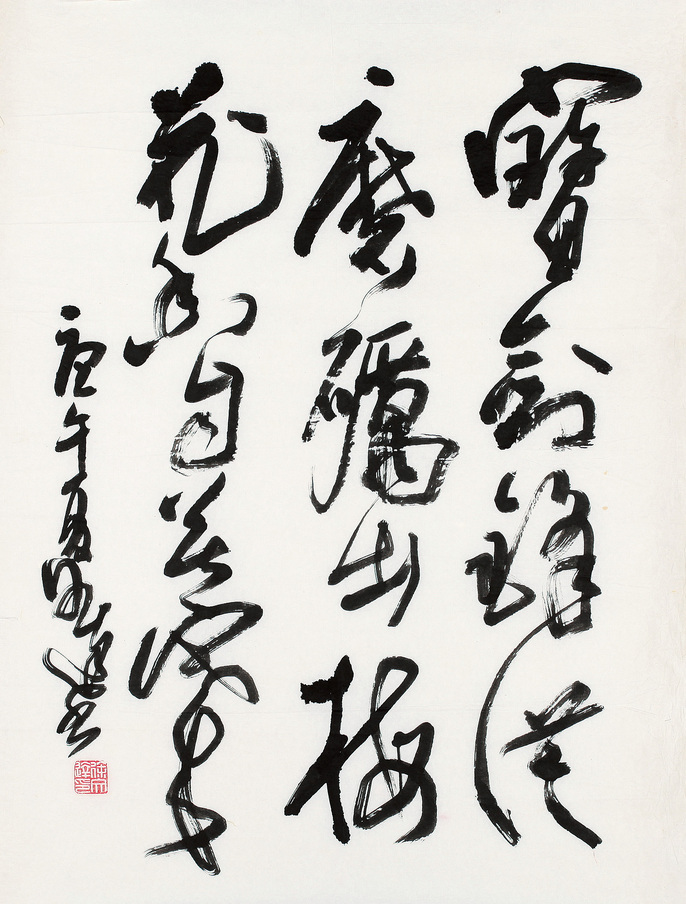 寶劍鋒從
磨礪出梅
花香自苦寒來
庚午夏書